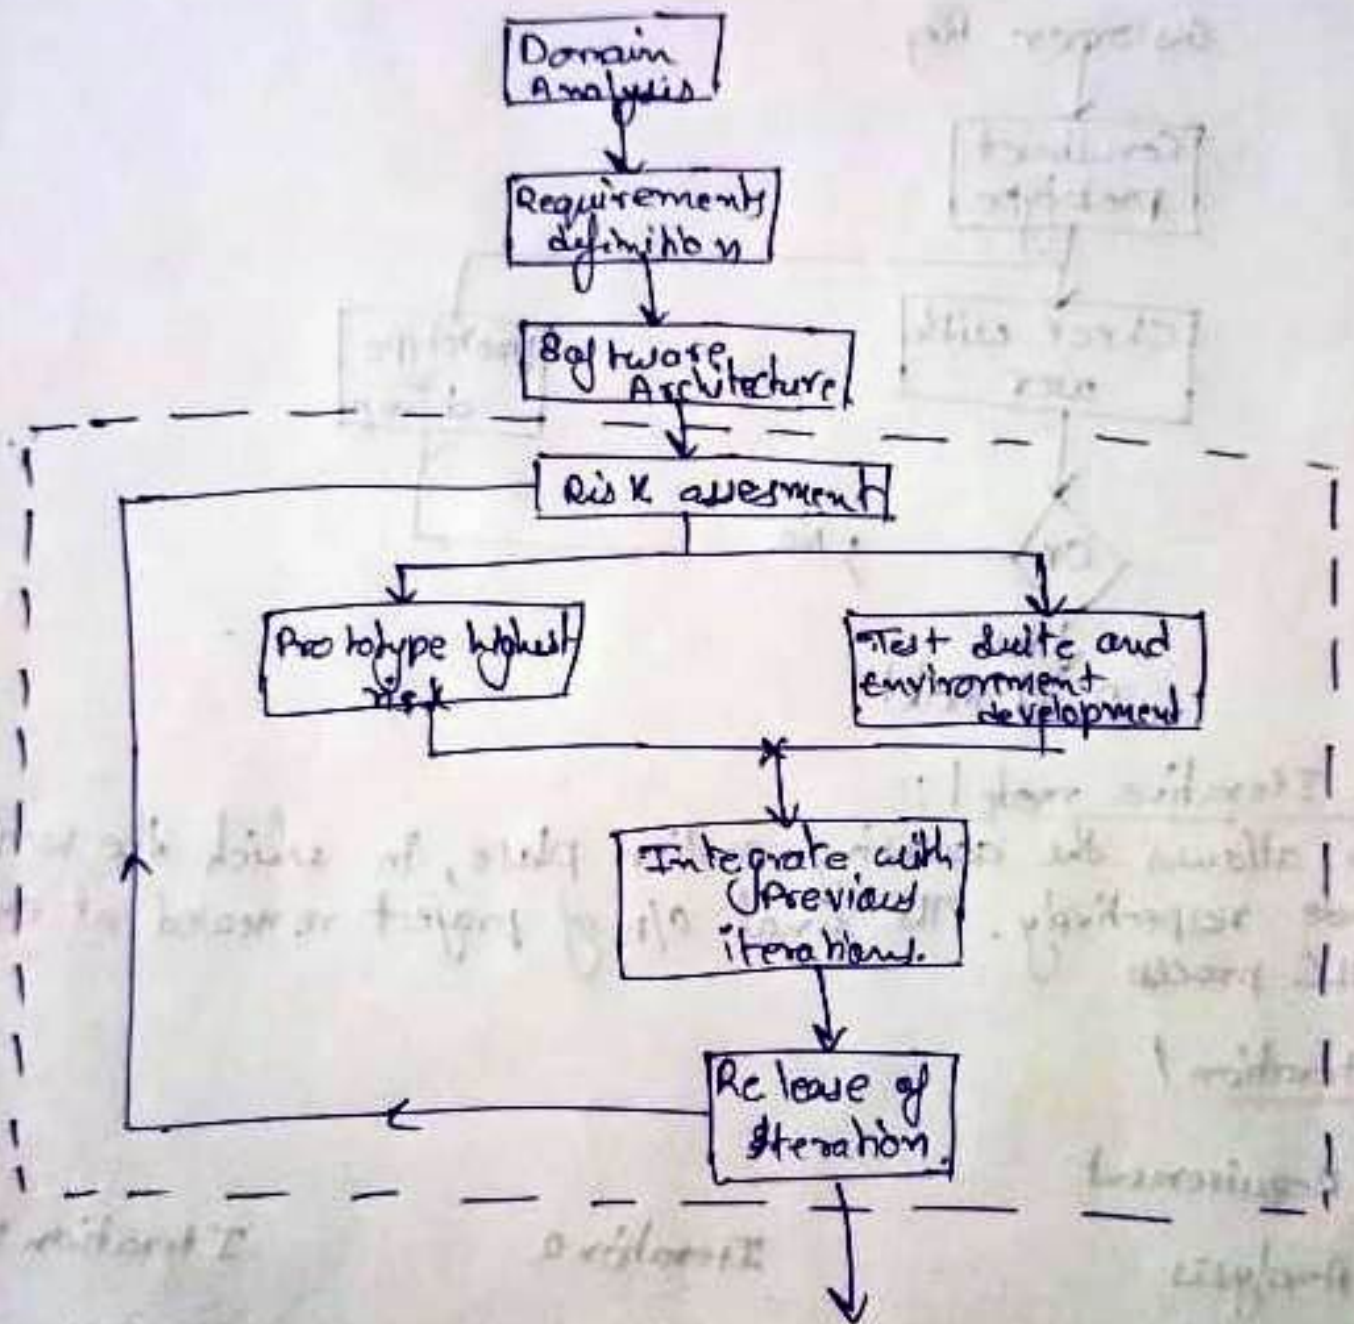 Domain
Analysis
Requirements
definition
Software
Architecture
Risk assesment
Prototype highest
risk
Test Suite and
environment
development
Integrate with
Previous
iterations.
Release of
Iteration.